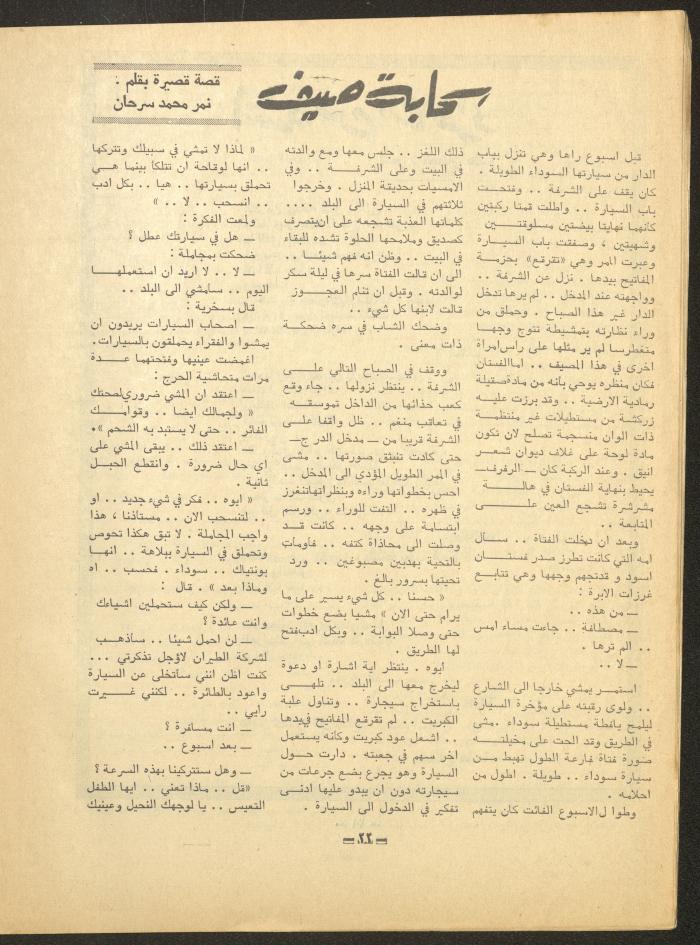 سحابة صيف
قصة قصيرة بقلم :
نمر محمد سرحان
قبل اسبوع راها وهي تنزل بباب
الدار من سيارتها السوداء الطويلة .
كان يقف على الشرفة .. وفتحت
باب السيارة .. واطلت قمتا ركبتين
كأنهما نهايتا بيضتين مسلوقتين
وشهيتين ، وصفقت باب السيارة
وعبرت الممر وهي «تقرقع» بحزمة
المفاتيح بيدها . نزل عن الشرفة ..
وواجهته عند المدخل .. لم يرها تدخل
الدار غير هذا الصباح . وحملق من
وراء نظارته بتمشيطة تتوج وجها
متغطرسا لم ير مثلها على راس امراة
اخرى في هذا المصيف .. اما الفستان
فكان منظره يوحي بأنه من مادة صقيلة
رمادية الارضية .. وقد برزت عليه
زركشة من مستطيلات غير منتظمة
ذات الوان منسجمة تصلح لان تكون
مادة لوحة على غلاف ديوان شعر
انيق . وعند الركبة كان ـ الرفرف
يحيط بنهاية الفستان في هالة
مشرشرة تشجع العين على
المتابعة ..
وبعد ان دخلت الفتاة .. سأل
امه التي كانت تطرز صدر فستان
اسود و قدتجهم وجهها وهي تتابع
غرزات الابرة :
ـ من هذه ..
ـ مصطافة .. جاءت مساء امس
.. الم ترها .
ـ لا ..
استمر يمشي خارجا الى الشارع
.. ولوى رقبته على مؤخرة السيارة
ليلمح يافطة مستطيلة سوداء .مشى
في الطريق وقد الحت على مخيلته
صورة فتاة فارعة الطول تهبط من
سيارة سوداء .. طويلة . اطول من
احلامه .
وطوا ل الاسبوع الفائت كان يتفهم
ذلك اللغز .. جلس معها ومع والدته
في البيت وعلى الشرفة .. وفي
الامسيات بحديقة المنزل . وخرجوا
ثلاثتهم في السيارة الى البلد ....
كلماتها العذبة تشجعه على ان يتصرف
كصديق وملامحها الحلوة تشده للبقاء
في البيت .. وظن انه فهم شيئا ..
الى ان قالت الفتاة سرها في ليلة سكر
لوالدته . وقبل ان تنام العجوز
قالت لابنها كل شيء ..
وضحك الشاب في سره ضحكة
ذات معنى .
ووقف في الصباح التالي على
الشرفة .. ينتظر نزولها .. جاء وقع
كعب حذائها من الداخل تموسقه
في تعاقب منغم .. ظل واقفا على
الشرفة قريبا من ـ مدخل الدر ج ـ
حتى كادت تنبثق صورتها .. مشى
في الممر الطويل المؤدي الى المدخل ..
احس بخطواتها وراءه وبنظراتها تنغرز
في ظهره .. التفت للوراء .. ورسم
ابتسامة على وجهه .. كانت قد
وصلت الى محاذاة كتفه .. فأومأت
بالتحية بهدبين مصبوغين .. ورد
تحيتها بسرور بالغ .
« حسنا .. كل شيء يسير على ما
يرام حتى الان » مشيا بضع خطوات
حتى وصلا البوابة .. وبكل ادب فتح
لها الطريق .
ايوه . ينتظر اية اشارة او دعوة
ليخرج معها الى البلد .. تلهى
باستخراج سيجارة .. وتناول علبة
الكبريت .. لم تقرقع المفاتيح في يدها
.. اشعل عود كبريت وكأنه يستعمل
اخر سهم في جعبته . دارت حول
السيارة وهو يجرع بضع جرعات من
سيجارته دون ان يبدو عليها ادنى
تفكير في الدخول الى السيارة .
« لماذا لا تمشي في سبيلك وتتركها
.. انها لوقاحة ان تتلكأ بينما هي
تحملق بسيارتها .. هيا .. بكل ادب
.. انسحب .. لا .. »
ولمعت الفكرة :
ـ هل في سيارتك عطل ؟
ضحكت بمجاملة :
ـ لا .. لا اريد ان استعملها
اليوم .. سامشي الى البلد ..
قال بسخرية :
ـ اصحاب السيارات يريدون ان
يمشوا والفقراء يحملقون بالسيارات.
اغمضت عينيها وفتحتهما عدة
مرات متحاشية الحرج :
ـ اعتقد ان المشي ضروري لصحتك
« ولجمالك ايضا .. وقوامك
الفائر .. حتى لا يستبد به الشحم ».
ـ اعتقد ذلك .. يبقى المشي على
اي حال ضرورة . وانقطع الحبل
ثانية .
« ايوه .. فكر في شيء جديد .. او
.. لتنسحب الان .. مستأذنا ، هذا
واجب المجاملة . لا تبق هكذا تحوص
وتحملق في السيارة ببلاهة .. انها
بونتياك .. سوداء . فحسب .. اه
وماذا بعد » . قال :
ـ ولكن كيف ستحملين اشياءك
وانت عائدة ؟
ـ لن احمل شيئا .. سأذهب
لشركة الطيران لاؤجل تذكرتي ...
كنت اظن انني سأتخلى عن السيارة
واعود بالطائرة .. لكنني غيرت
رايي ..
ـ انت مسافرة ؟
ـ بعد اسبوع ..
ـ وهل ستتركينا بهذه السرعة ؟
«قل .. ماذا تعني .. ايها الطفل
التعيس .. يا لوجهك النحيل وعينيك
ـ ٢٢ ـ